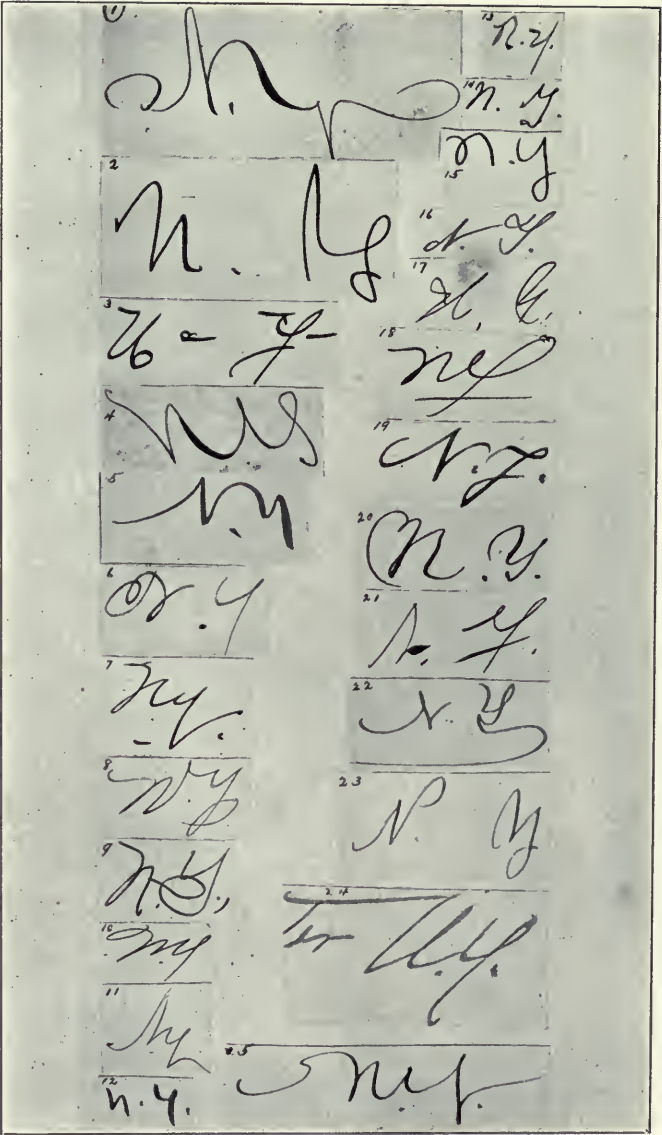 1
N. Y
2
N. Y
3
N - Y -
4
N Y
5
N. Y
6
N. Y
7
N Y.
8
N. Y
9
N. Y.,
10
N. Y
11
N Y
12
N. Y.
13
N. Y.
14
N. Y.
15
N. Y
16
N. Y.
17
N. Y.
18
N Y
19
N. Y.
20
N. Y.
21
N. Y.
22
N. Y
23
N. Y
24
N. Y.
25
N. Y.